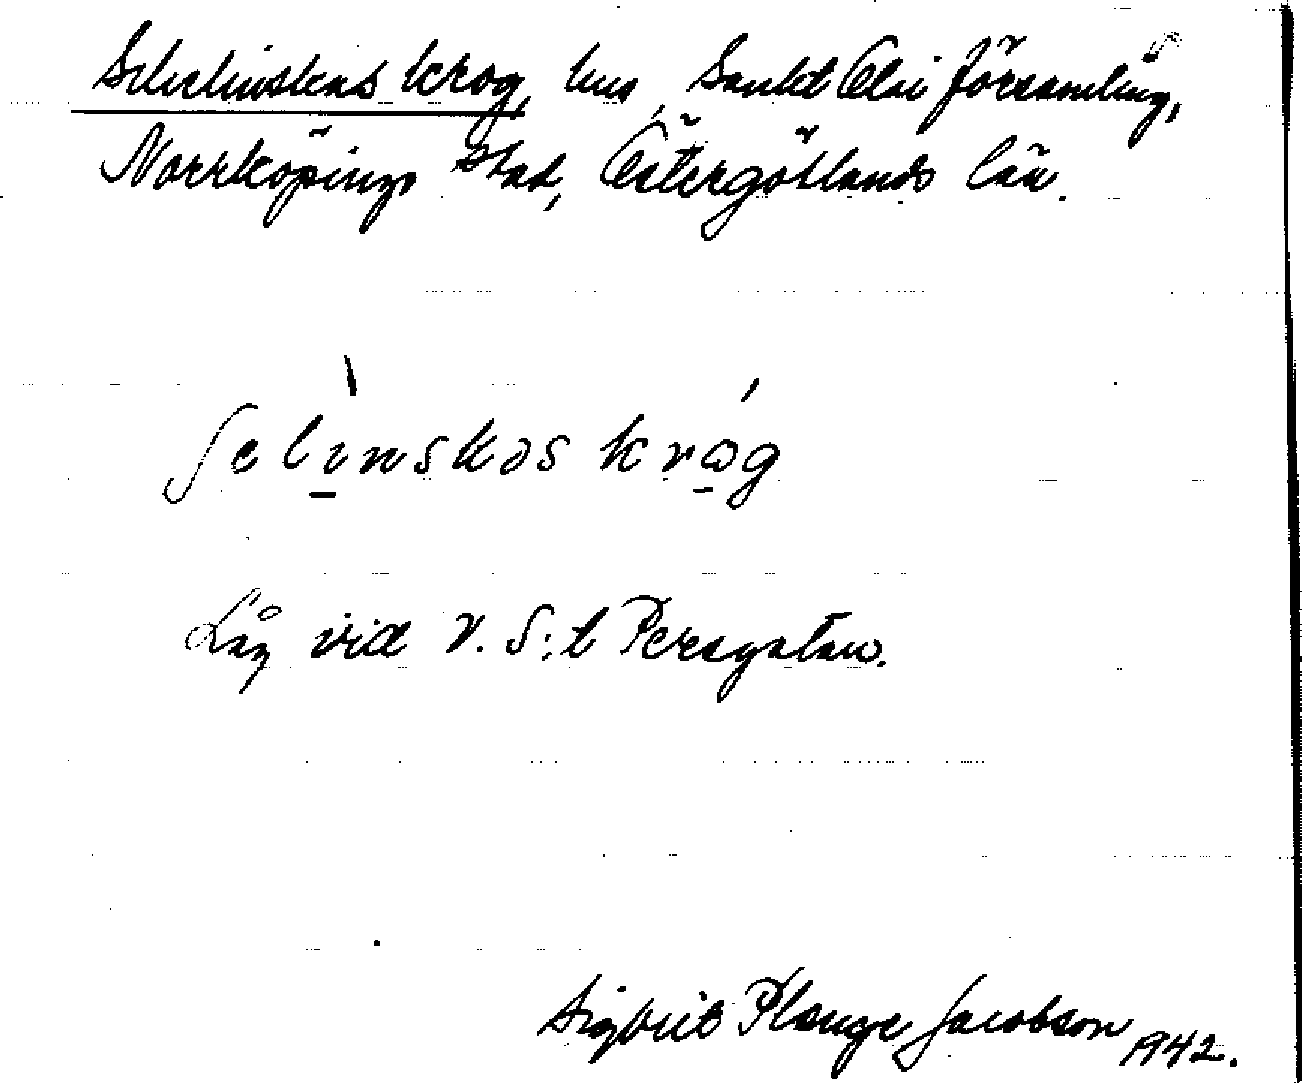 Schelinskens krog, hus, Sankt Olai församling,
Norrköpings stad, Östergötlands län.
ʃelinskas kråg
Låg vid V. S:t Persgatan.
Sigbrit Plænge Jacobson 1942.